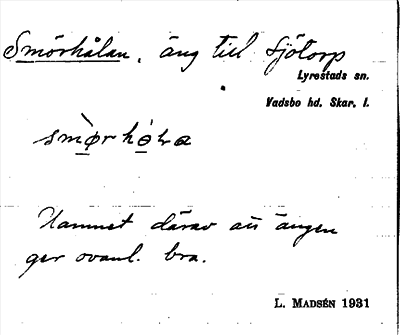 Smörhålan, äng till Sjötorp
Lyrestads sn.
Vadsbo hd. Skar. l.
Namnet därav att ängen
ger ovanl. bra.
L. MADSÉN 1931